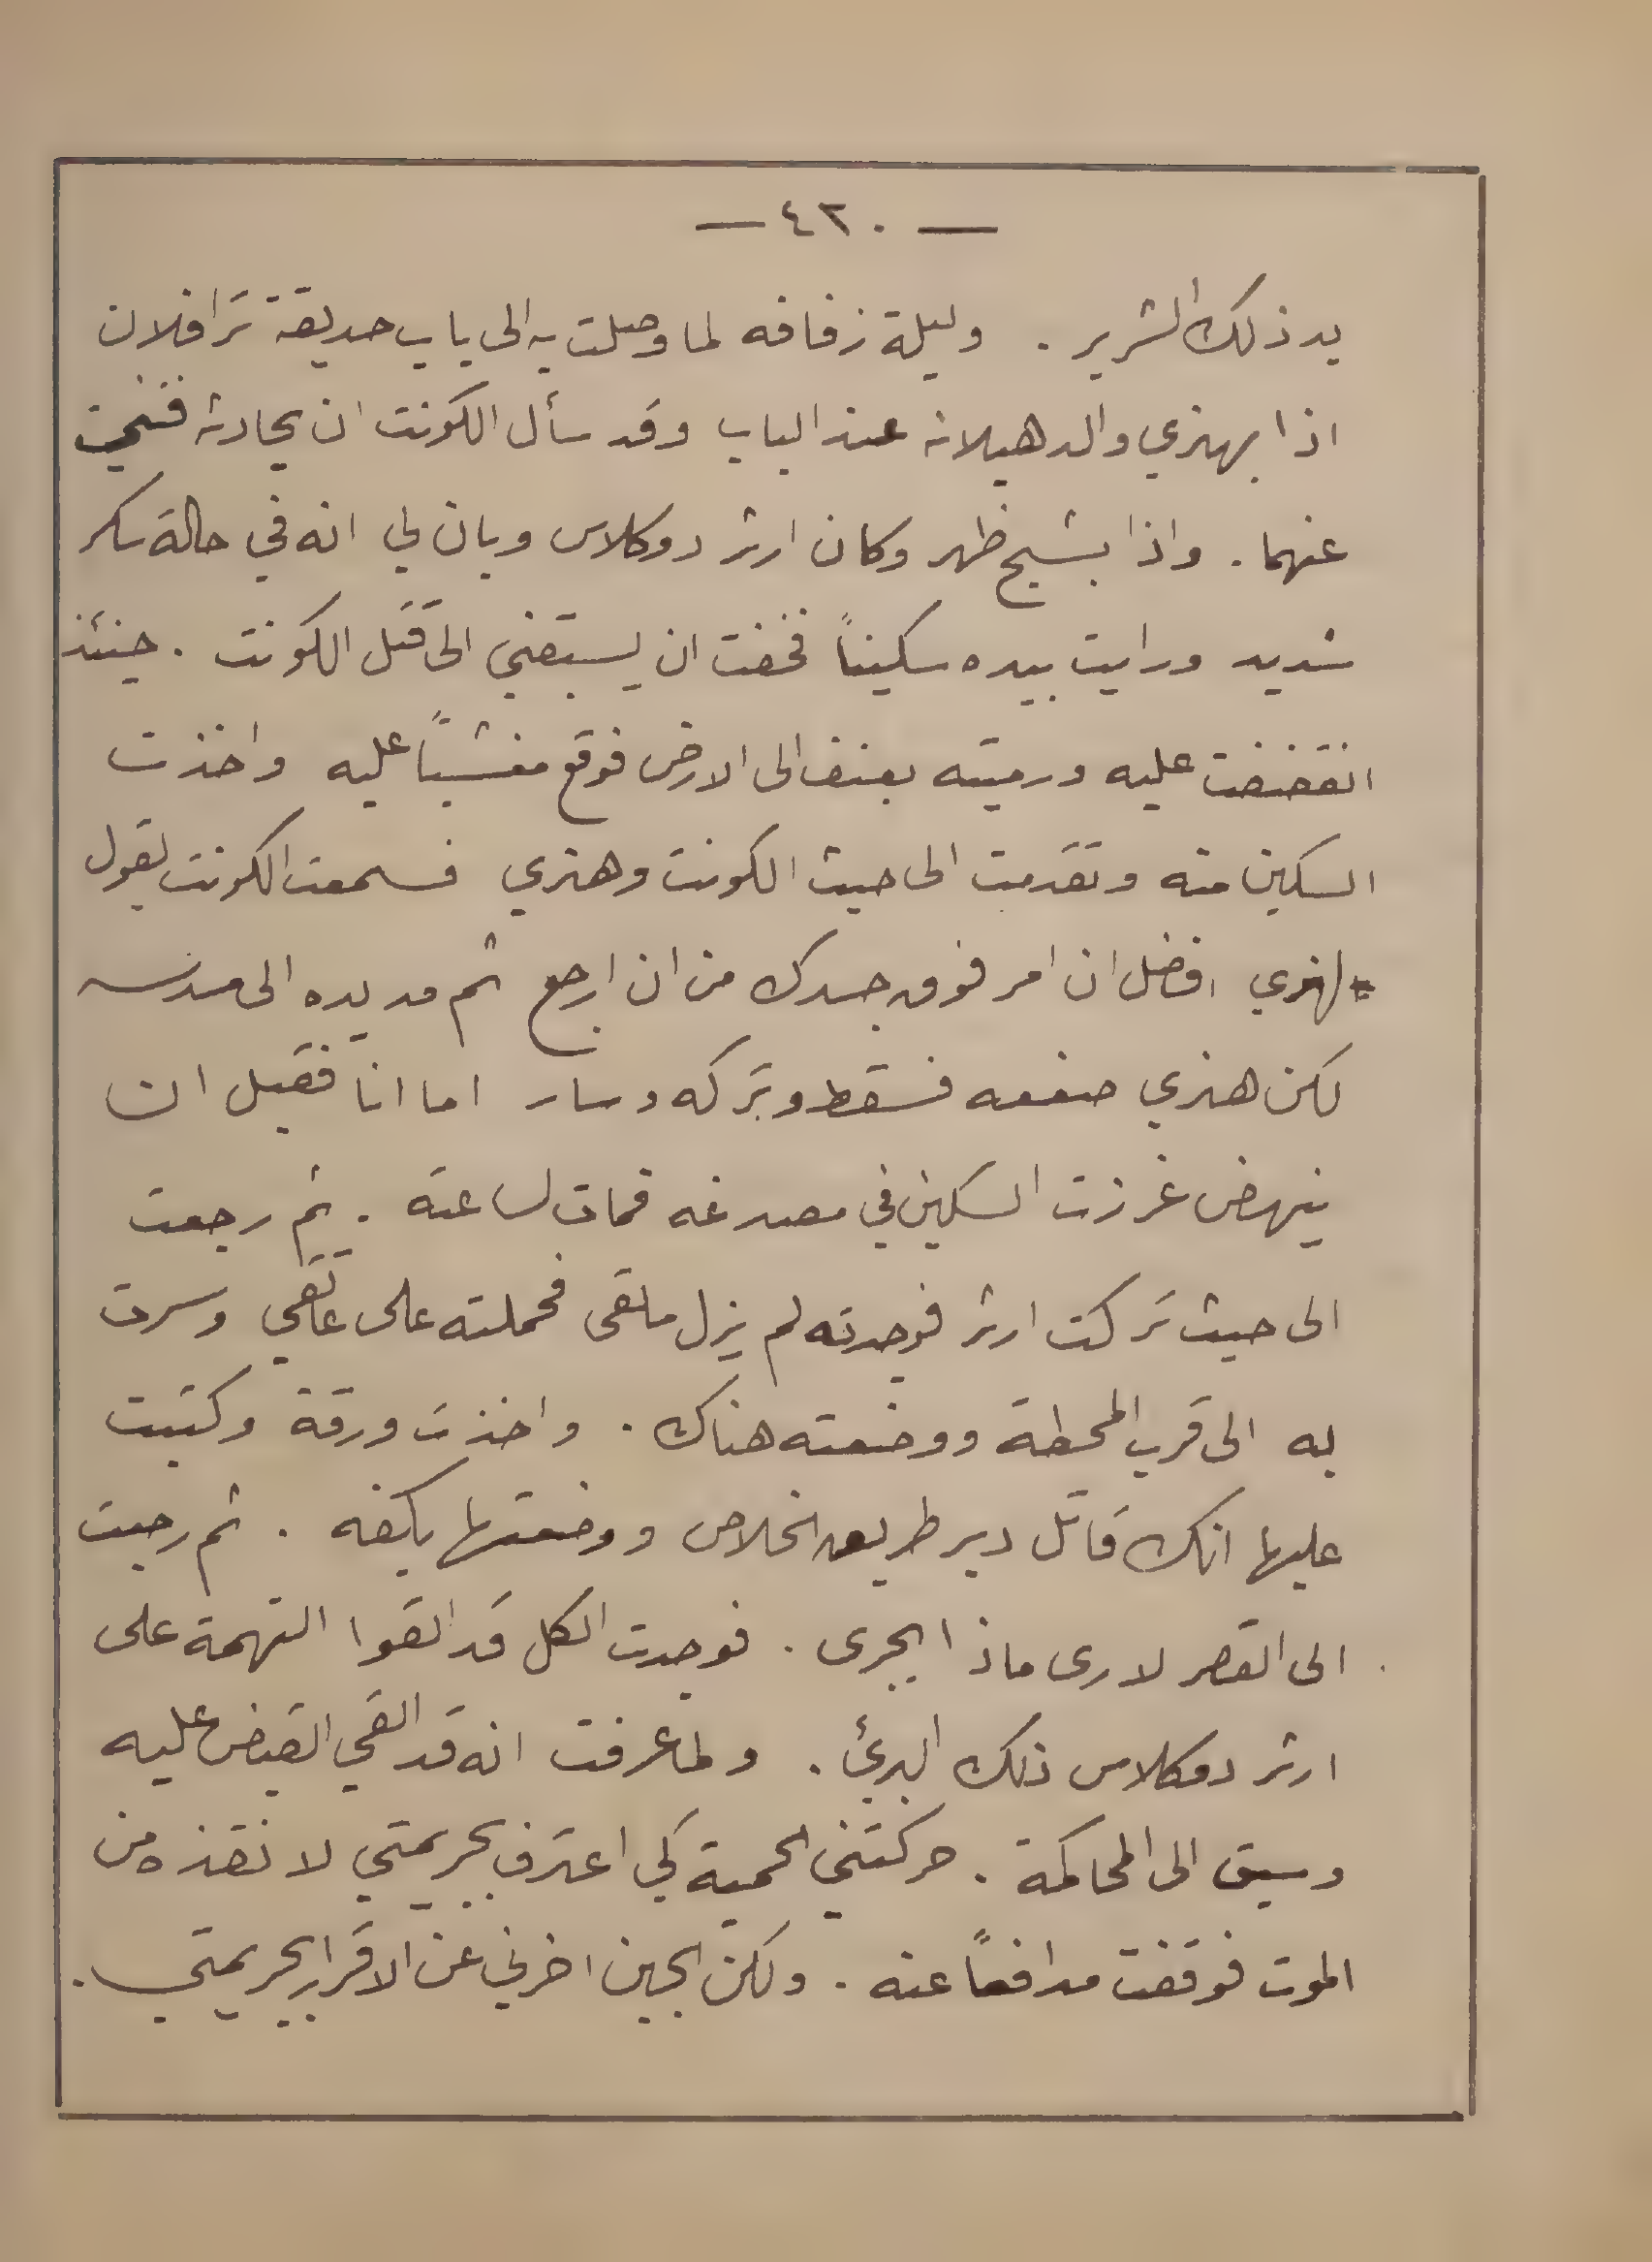 — ٤٢٠ —
يد ذلك الشرير . وليلة زفافه لما وصلت به الى باب حديقة ترافلان
اذا بهنري والد هيلانه عند الباب وقد سأل الكونت ان يحادثه فتنحيت
عنهما . واذا بشبح ظهر وكان ارثر دوكلاس وبان لي انه في حالة سكر
شديد ورايت بيده سكيناً فخفت ان يسبقني الى قتل الكونت . حينئذ
انقضضت عليه ورميته بعنف الى الارض فوقع مغشياً عليه واخذت
السكين منه وتقدمت الى حيث الكونت وهنري فسمعت الكونت يقول
لهنري افضل ان امر فوق جسدك من ان ارجع ثم مد يده الى مسدسه
لكن هنري صفعه فسقط وتركه وسار اما انا فقبل ان
ينهض غرزت السكين في مصدغه فمات لساعته . ثم رجعت
الى حيث تركت ارثر فوجدته لم يزل ملقى فحملته على عاتقي وسرت
به الى قرب المحطة ووضعته هناك . واخذت ورقة وكتبت
عليها انك قاتل دبر طريق الخلاص ووضعتها بكفه . ثم رجعت
الى القصر لارى ماذا يجرى . فوجدت الكل قد القوا التهمة على
ارثر دوكلاس ذلك البرئ . ولما عرفت انه قد القي القبض عليه
وسيق الى المحاكمة . حركتني الحمية لكي اعترف بجريمتي لانقذه من
الموت فوقفت مدافعاً عنه . ولكن الجبن اخرني عن الاقرار بجريمتي .